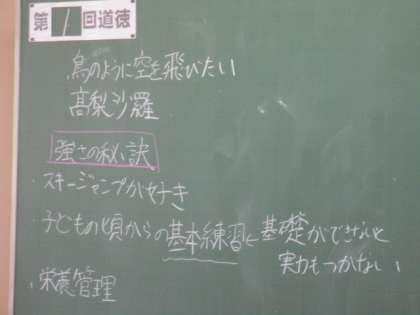 第1回道徳
鳥のように空を飛びたい
高梨沙羅
強さの秘訣
・スキージャンプが好き
・子どもの頃からの基本練習に基礎ができないと
実力もつかない
・栄養管理